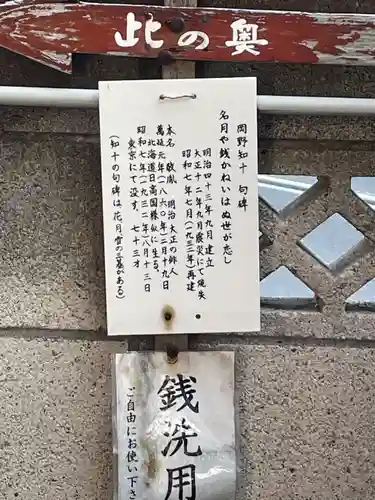 此の奥
岡野知十 句碑
名月や銭かねいはぬ世が恋し
明治四十三年九月建立
大正十二年九月震災にて焼失
昭和七年七月(一九三二年)再建
本名 敬胤 明治 大正の俳人
萬延元年(一八六〇年)二月十九日
北海道日高国様似に生る。
昭和七年(一九三二年)八月十三日
東京にて没す。 七十三才
(知十の句碑は、花月堂の三基がある)
銭洗用
ご自由にお使い下さ